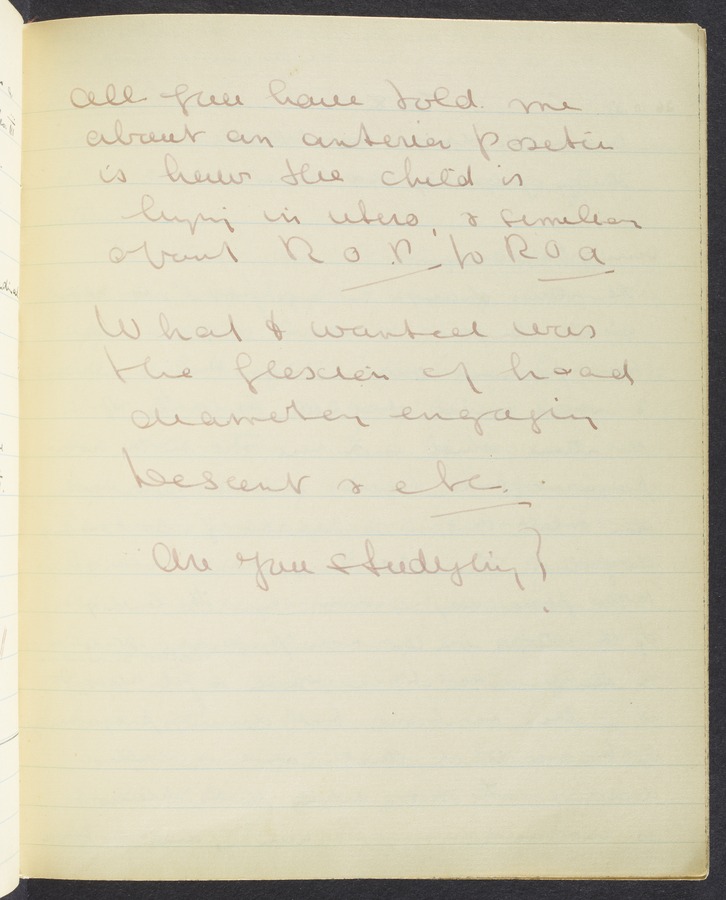 all you have told me
about an anterior position
is how the child is
lying in utero, & similar
about R.O.P. to R O A
What I wanted was
the flexion of head
diameter engaging
Descent & etc.
Are you studying?